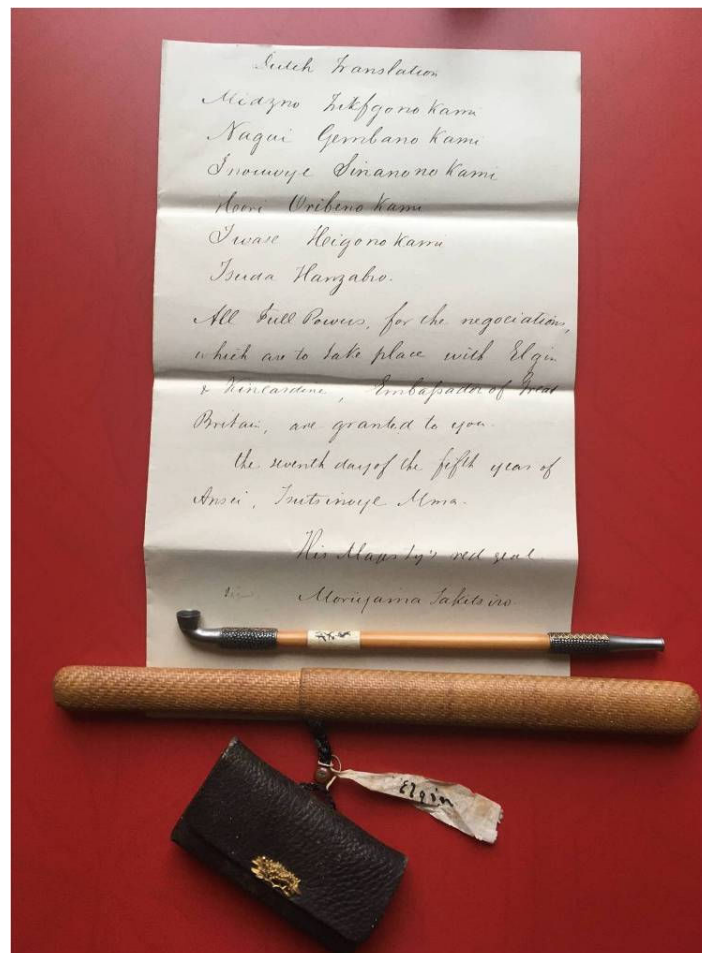 Dutch Translation
Midzno Tikfgono Kami
Nagui Gembano Kami
Inouwye Sinanono Kami
Hoori Oribeno Kami
Iwase Heigono Kami
Tsuda Hanzabro.
All Full Powers, for the negociations,
which are to take place with Elgin
& Kincardine, Embassador of Great
Britain, are granted to you.
the seventh day of the fifth year of
Ansei, Tsutsinoye Mma.
His Majesty's red seal
Moriyama Takitsiro
Elgin